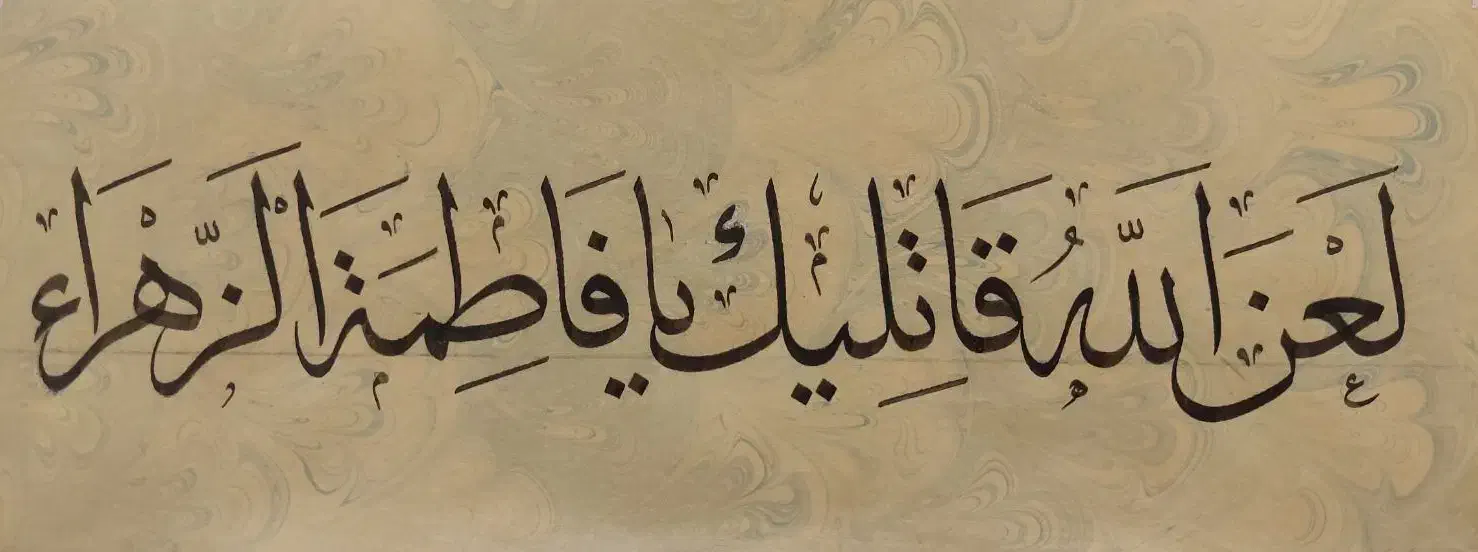 لَعْنَ اللَّهُ قَاتِلِيك يا فَاطِمَة الْزَّهْرَاء